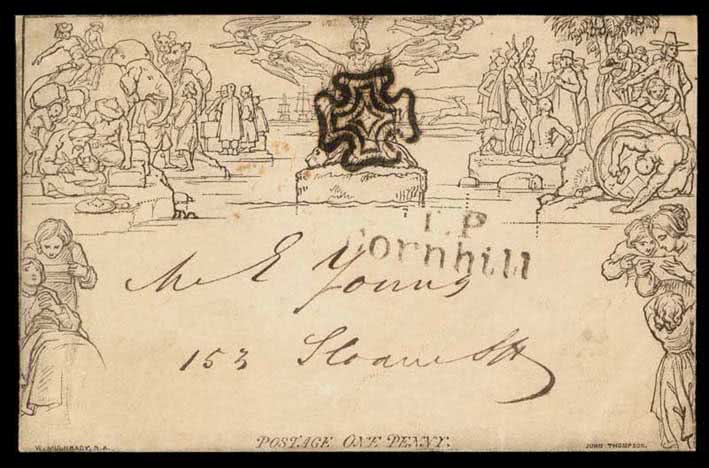 T.P
Cornhill
Mr E Young
153 Sloane St
POSTAGE ONE PENNY.
W. MULREADY, R.A.
JOHN THOMPSON.